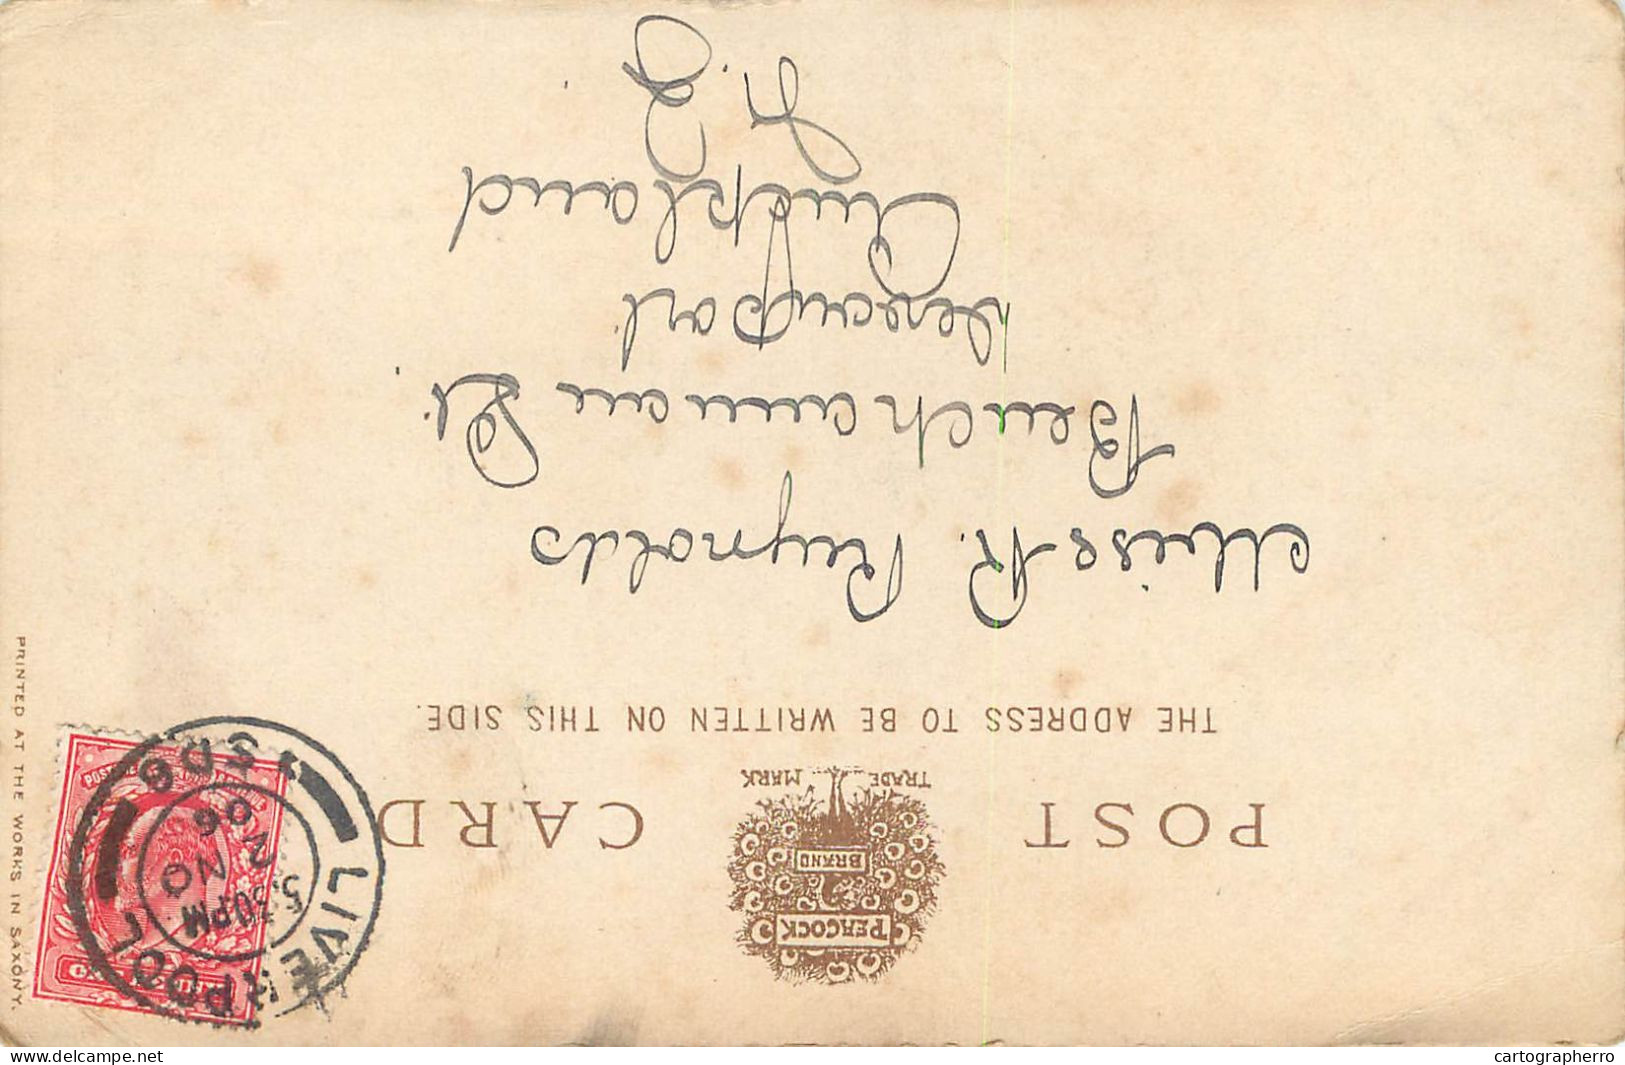 POST CARD
PEACOCK
BRAND
TRADE MARK
THE ADDRESS TO BE WRITTEN ON THIS SIDE.
Miss R. Reynolds
St.
Auckland
N. Z
LIVERPOOL
5.30PM
NO 2
06
PRINTED AT THE WORKS IN SAXONY.
www.delcampe.net
cartographerro